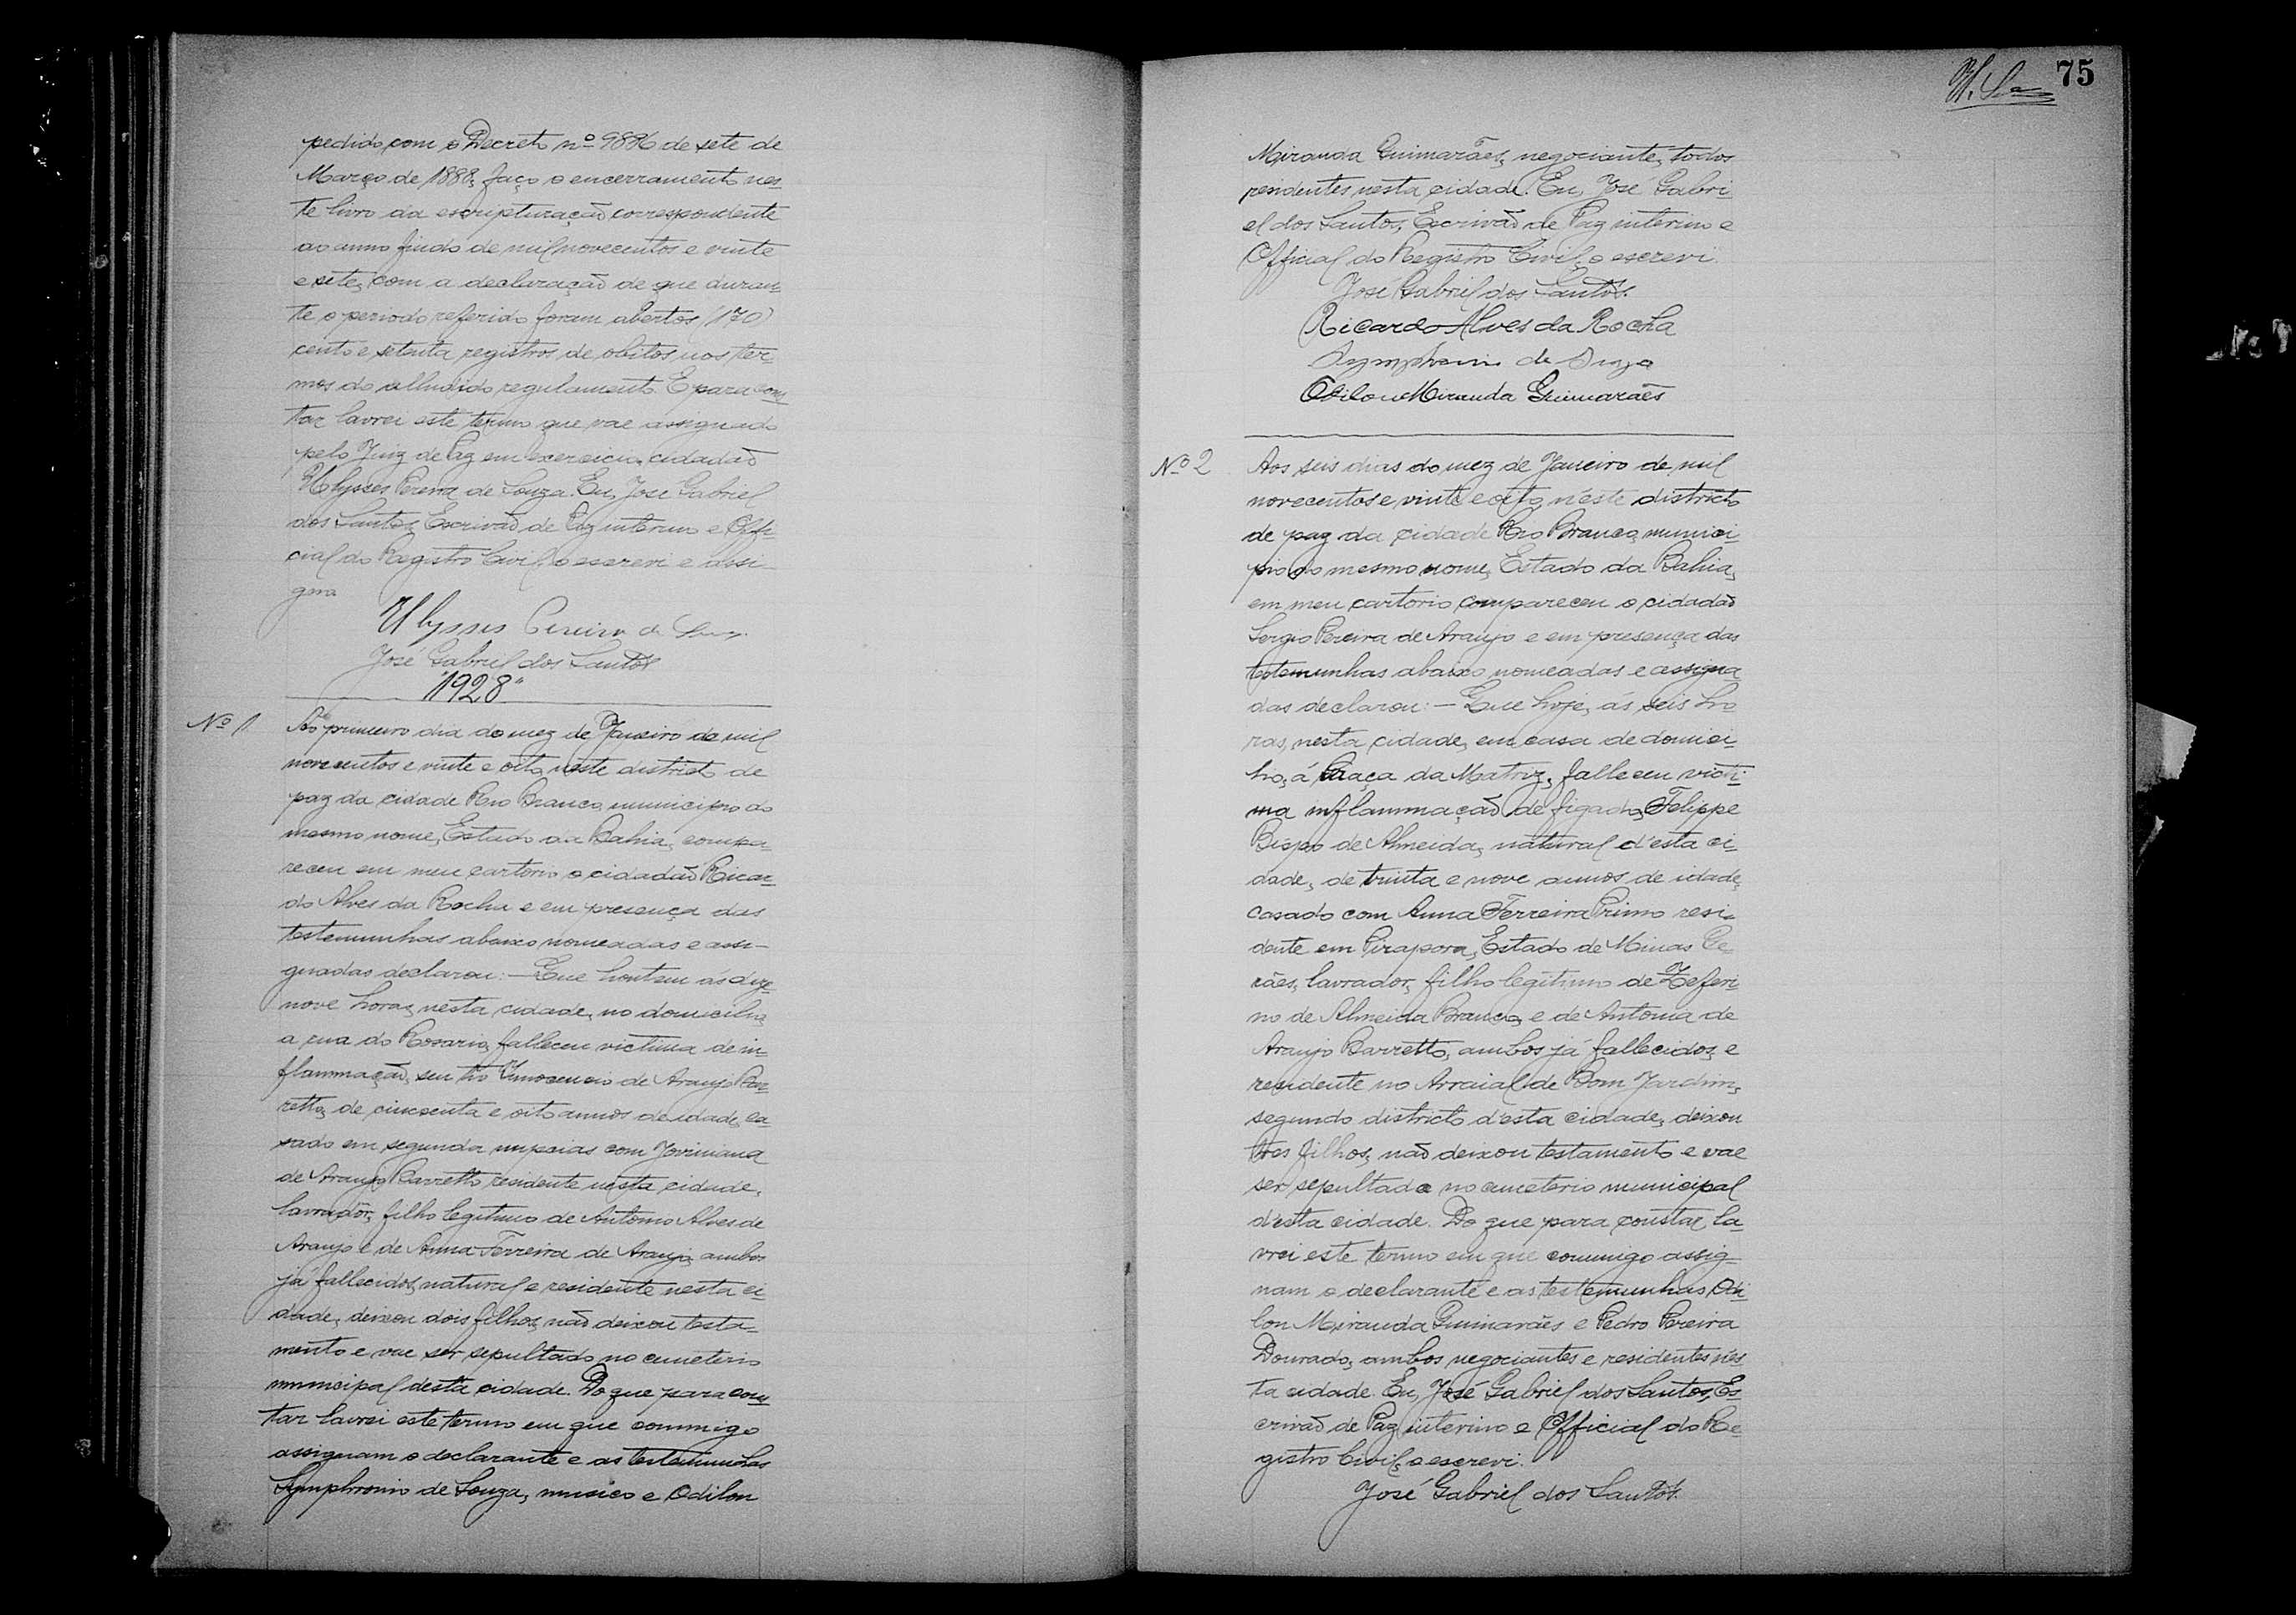 pedido com o Decreto nº 9886 de sete de
Março de 1888, faço o encerramento nes-
te livro da escripturação correspondente
ao anno findo de mil novecentos e vinte
e sete, com a declaração de que duran-
te o periodo referido foram abertos (170)
cento e setenta registros de obitos nos ter-
mos do alludido regulamento. E para cons-
tar lavrei este termo que vae assignado
pelo Juiz de Paz em exercicio, cidadão
Ulysses Pereira de Souza. Eu, José Gabriel
dos Santos, Escrivão de Paz interino e Offi-
cial do Registro Civil, o escrevi e assi-
gno.
Ulysses Pereira de Souza
José Gabriel dos Santos
"1928"
Nº 1.
Ao primeiro dia do mez de Janeiro de mil
novecentos e vinte e oito, neste districto de
paz da cidade Rio Branco, municipio do
mesmo nome, Estado da Bahia, compa-
receu em meu cartorio o cidadão Ricar-
do Alves da Rocha e em presença das
testemunhas abaixo nomeadas e assi-
gnadas declarou: — Que hontem ás deze-
nove horas, nesta cidade, no domicilio,
a rua do Rosario, falleceu victima de in-
flammação, seu tio Innocencio de Araujo Bar-
retto, de cincoenta e oito annos de idade, ca-
sado em segunda nupcias com Joviniana
de Araujo Barretto residente nesta cidade,
lavrador, filho legitimo de Antonio Alves de
Araujo e de Anna Ferreira de Araujo, ambos
já fallecidos, natural e residente nesta ci-
dade, deixou dois filhos, não deixou testa-
mento e vae ser sepultado no cemeterio
municipal desta cidade. Do que para cons-
tar lavrei este termo em que commigo
assignam o declarante e as testemunhas
Symphronio de Souza, musico e Odilon
75
Miranda Guimarães, negociante, todos
residentes nesta cidade. Eu, José Gabri-
el dos Santos, Escrivão de Paz interino e
Official do Registro Civil, o escrevi.
José Gabriel dos Santos.
Ricardo Alves da Rocha
Symphronio de Souza
Odilon Miranda Guimarães
Nº 2
Aos seis dias do mez de Janeiro de mil
novecentos e vinte e oito, n'este districto
de paz da cidade Rio Branco, munici-
pio do mesmo nome, Estado da Bahia,
em meu cartorio compareceu o cidadão
Sergio Pereira de Araujo e em presença das
testemunhas abaixo nomeadas e assigna-
das declarou: — Que hoje, ás seis ho-
ras, nesta cidade, em casa de domici-
lio, á Praça da Matriz, falleceu victi-
ma inflammação de figado, Felippe
Bispo de Almeida, natural d'esta ci-
dade, de trinta e nove annos de idade,
casado com Anna Ferreira Primo resi-
dente em Pirapora, Estado de Minas Ge-
rães, lavrador, filho legitimo de Zeferi-
no de Almeida Branco, e de Antonia de
Araujo Barretto, ambos já fallecidos, e
residente no Arraial de Bom Jardim,
segundo districto d'esta cidade, deixou
tres filhos, não deixou testamento e vae
ser sepultado no cemeterio municipal
d'esta cidade. Do que para constar, la-
vrei este termo em que commigo assig-
nam o declarante e as testemunhas, Odi-
lon Miranda Guimarães e Pedro Pereira
Dourado, ambos negociantes e residentes nes-
ta cidade. Eu, José Gabriel dos Santos, Es-
crivão de Paz interino e Official do Re-
gistro Civil, o escrevi.
José Gabriel dos Santos.